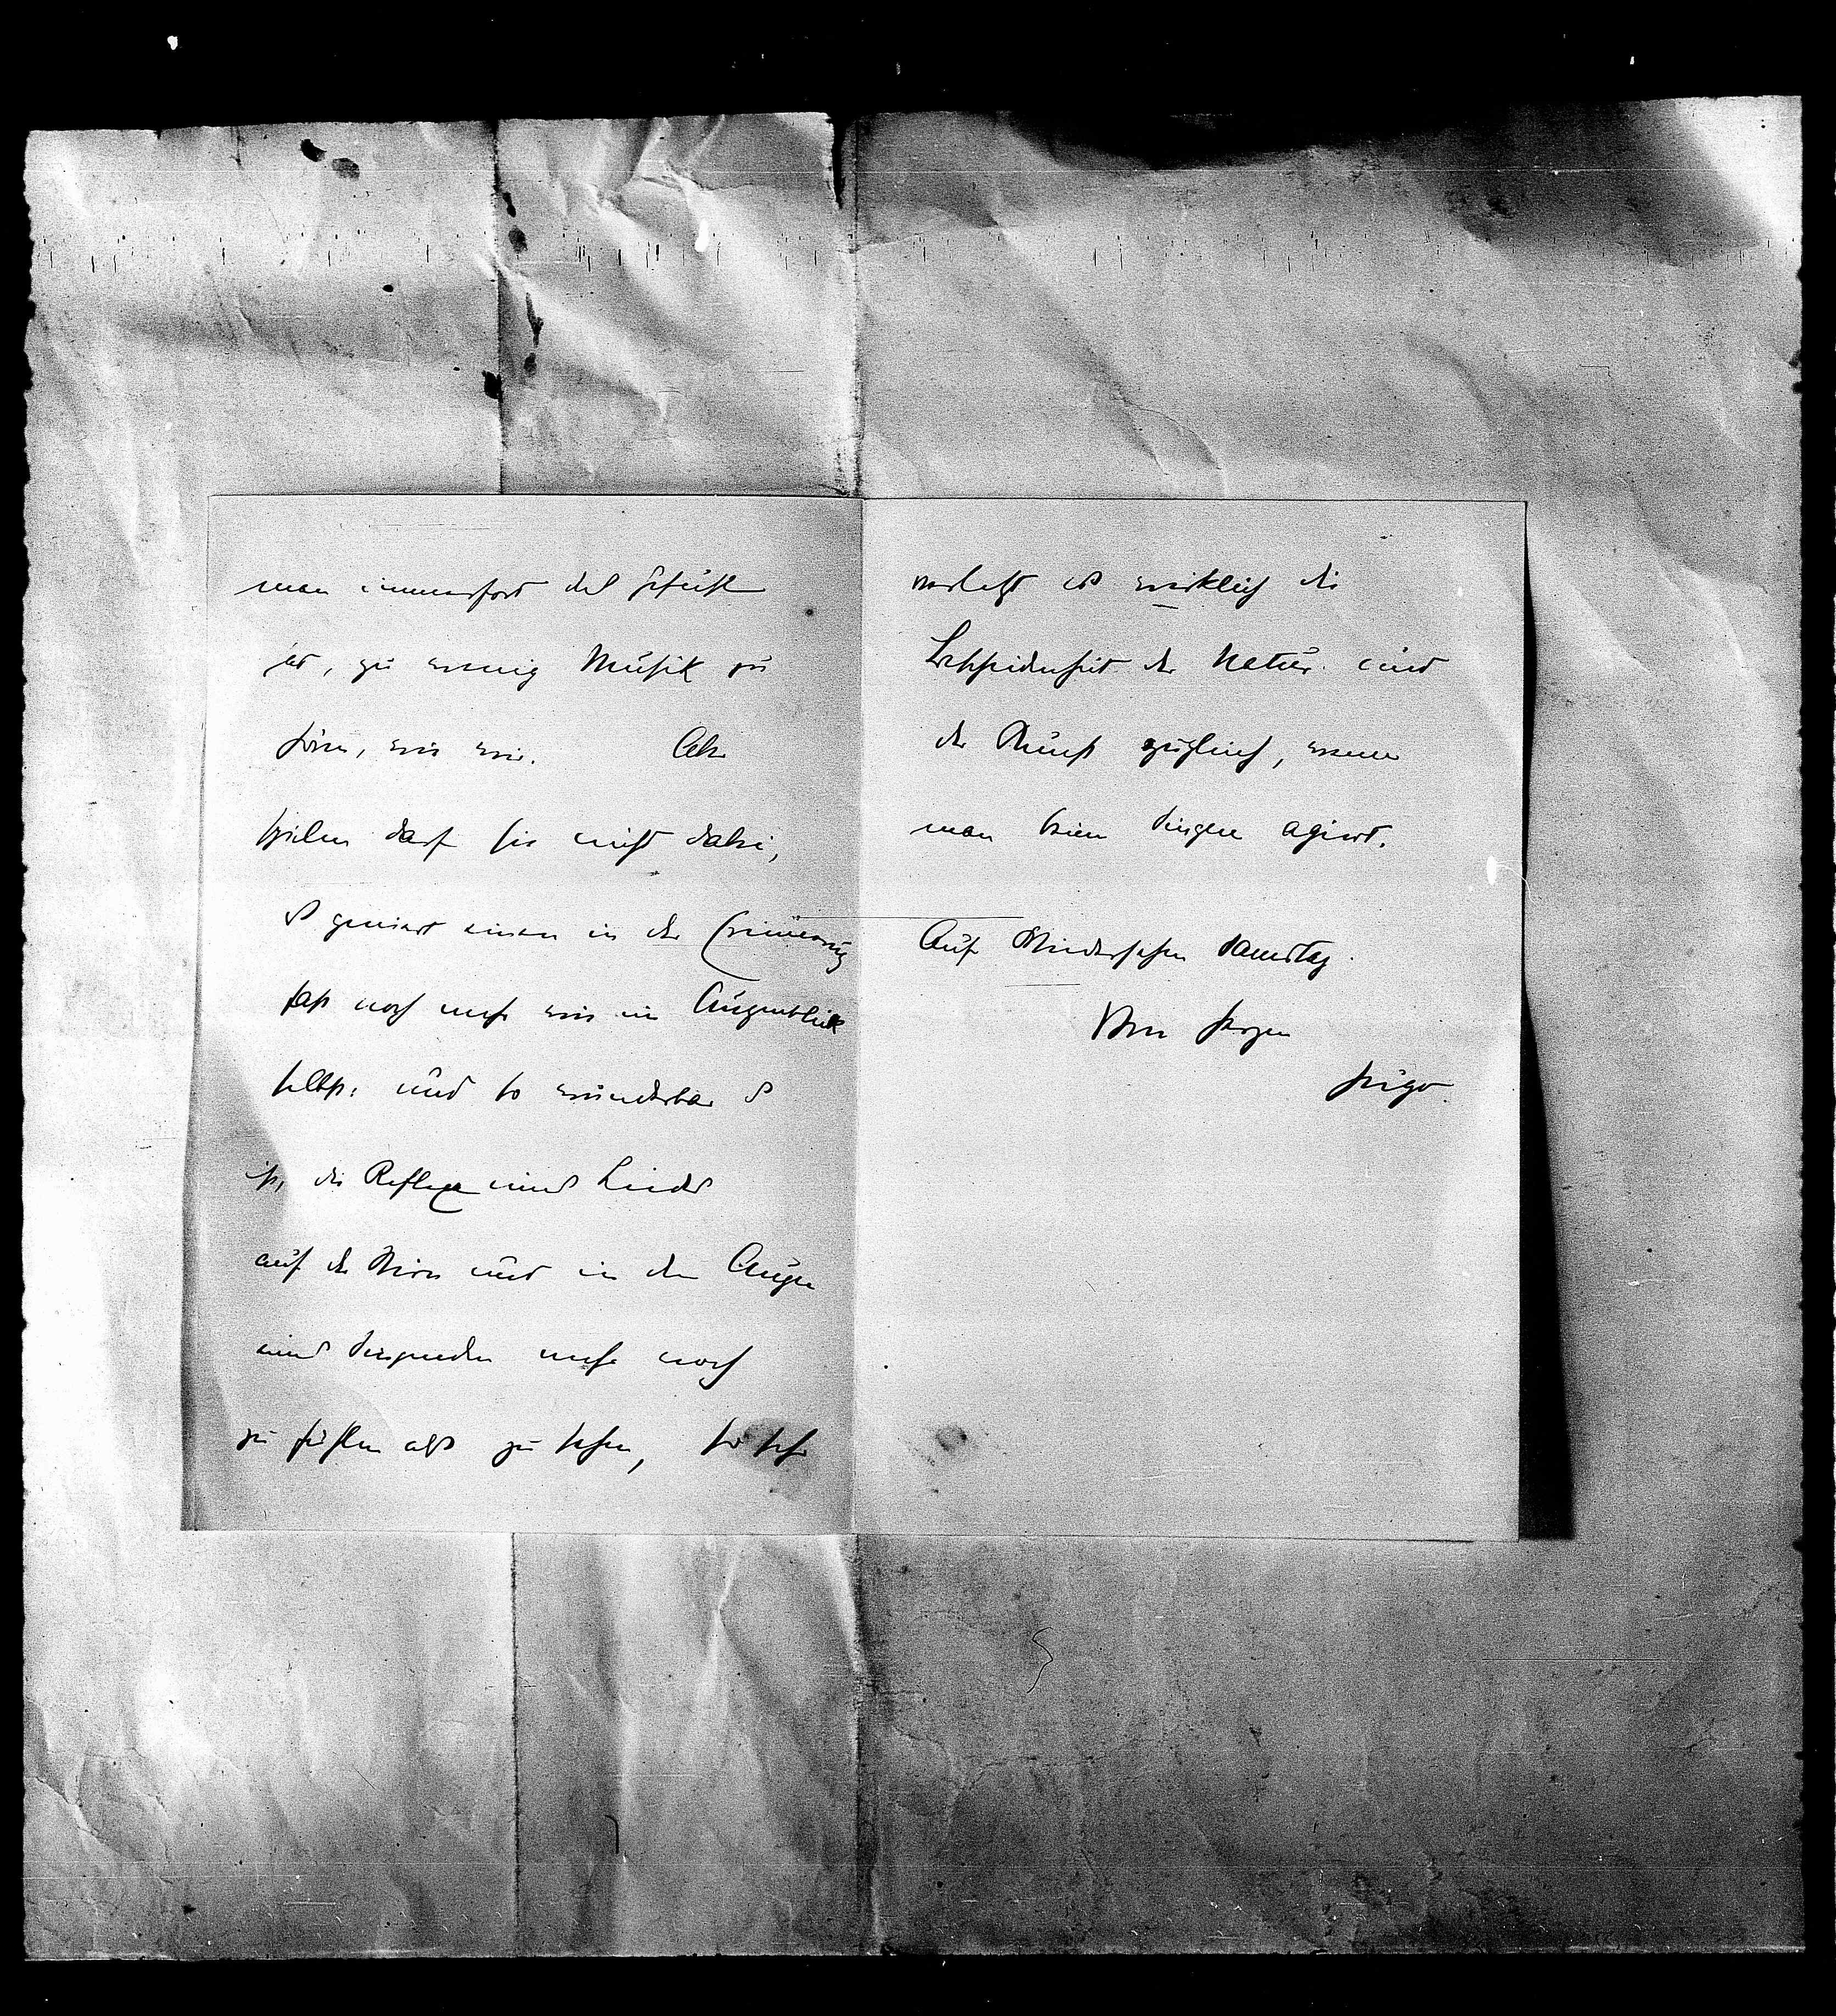 man immerfort das Gefühl
hat, zu wenig Musik zu
hören, wie wir. Aber
spielen darf sie nicht dabei,
es geniert einen in der Erinnerung
fast noch mehr wie im Augenblick
selbst: und so wunderbar es
ist, die Reflexe eines Liedes
auf der Stirn und in den Augen
eines Singenden mehr noch
zu fühlen als zu sehen, so sehr
verletzt es wirklich die
Bescheidenheit der Natur und
der Kunst zugleich, wenn
man beim Singen agiert.
Auf Wiedersehen Samstag.
Von Herzen
Hugo.